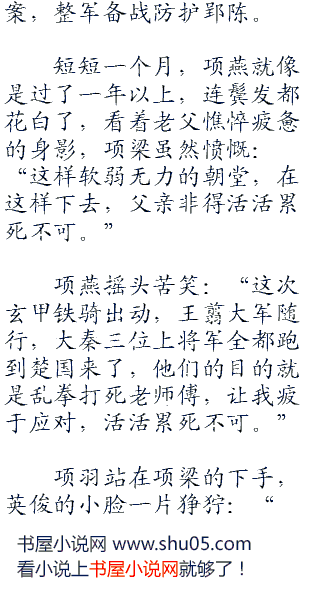 案，整军备战防护郢陈。
短短一个月，项燕就像
是过了一年以上，连鬓发都
花白了，看着老父憔悴疲惫
的身影，项梁虽然愤慨：
“这样软弱无力的朝堂，在
这样下去，父亲非得活活累
死不可。”
项燕摇头苦笑：“这次
玄甲铁骑出动，王翦大军随
行，大秦三位上将军全都跑
到楚国来了，他们的目的就
是乱拳打死老师傅，让我疲
于应对，活活累死不可。”
项羽站在项梁的下手，
英俊的小脸一片狰狞：“
书屋小说网 www.shu05.com
看小说上书屋小说网就够了！